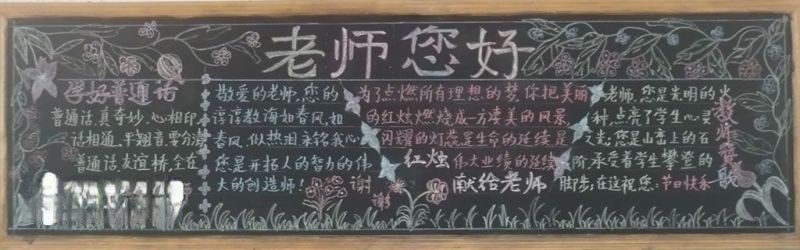 老师您好
学好普通话
普通话,真奇妙,心相印,
话相通,平翘音,要分清
普通话,友谊桥,全在
敬爱的老师,您的
谆谆教诲如春风,如
春风,似热泪永铭我心
您是开拓人的智力的伟
大的创造师!
谢
谢
为了点燃所有理想的梦,你把美丽
的红烛燃烧成一方凄美的风景
闪耀的灯蕊是生命的延续是
伟大业绩的延续
红烛
献给老师
老师,您是光明的火
种,点亮了学生心灵
之光;您是山峦上的石
阶,承受着学生攀登的
脚步;在这祝您:节日快乐
教师赞歌